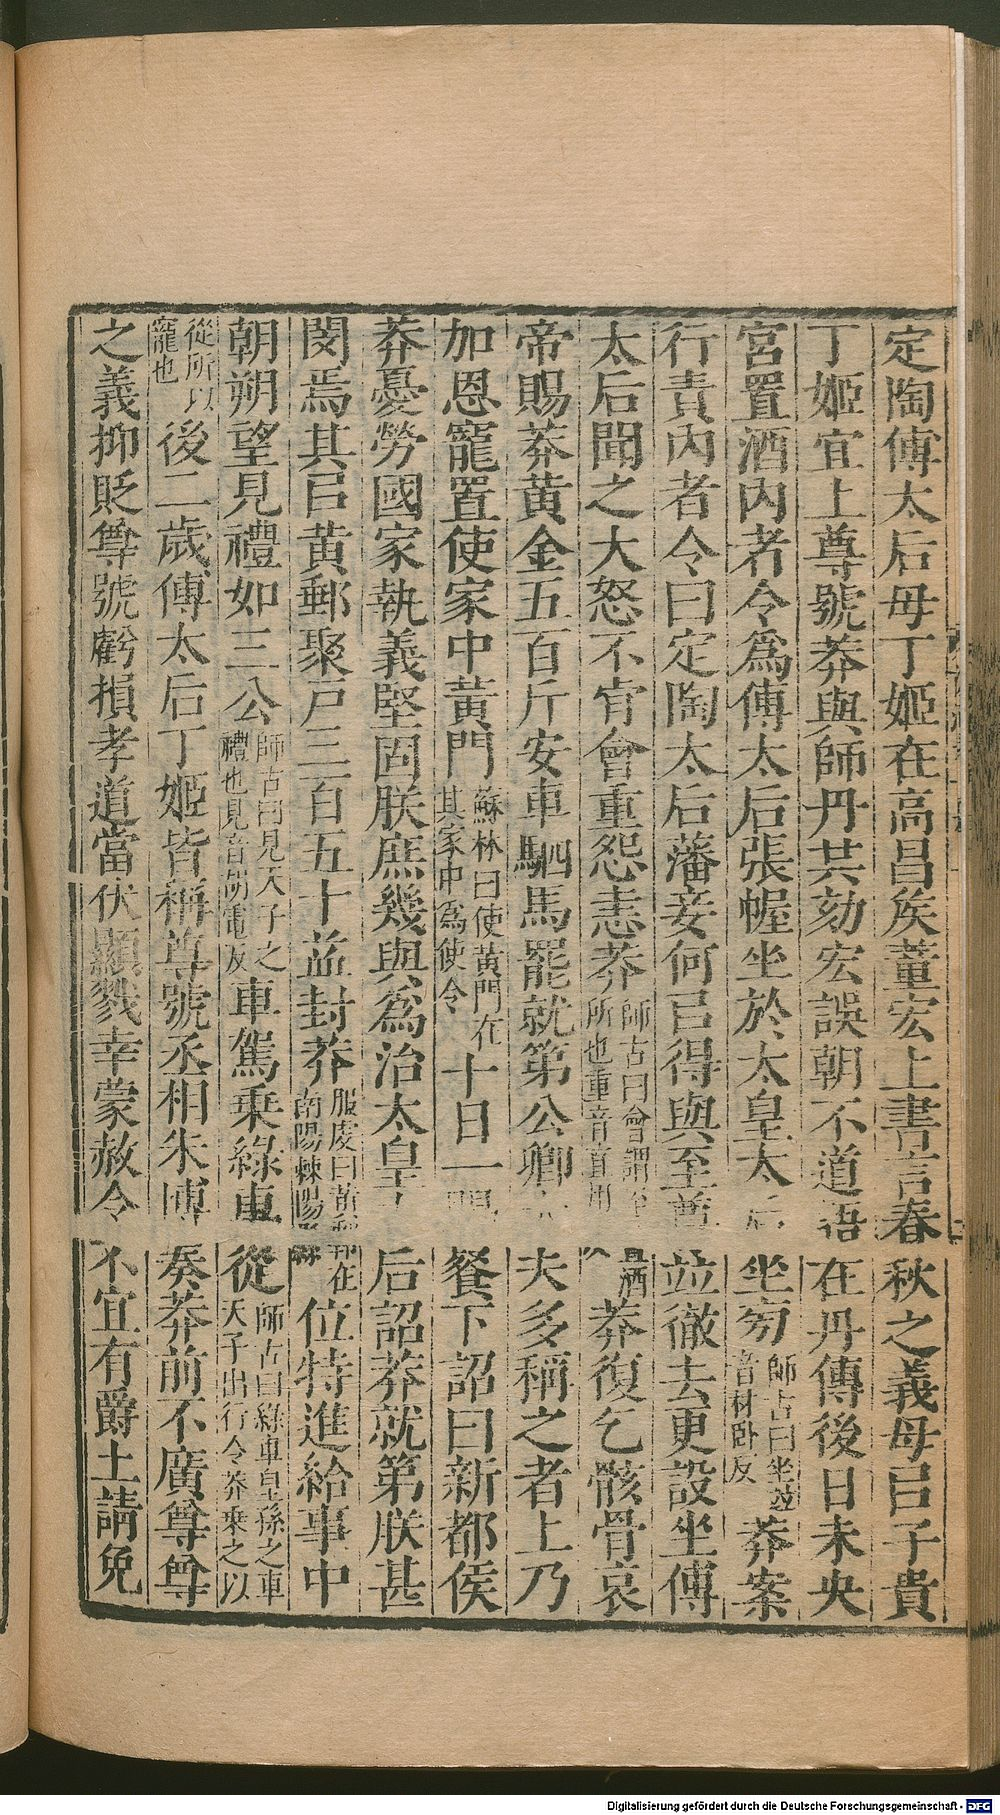 定陶傅太后母丁姬在高昌矦董宏上書言春秋之義母㠯子貴
丁姬宜上尊號莽與師丹共劾宏誤朝不道語在丹傳後日未央
宮置酒內者令爲傅太后張幄坐於太皇太后坐旁師古曰坐並音材卧反莽案
行責內者令曰定陶太后藩妾何㠯得與至尊竝徹去更設坐傅
太后聞之大怒不肯會重怨恚莽師古曰會謂至酒所也重音直用莽復乞骸骨哀
帝賜莽黃金五百斤安車駟馬罷就第公卿大夫多稱之者上乃
加恩寵置使家中黃門蘇林曰使黃門在其家中爲使令十日一賜餐下詔曰新都矦
莽憂勞國家執義堅固朕庶幾與爲治太皇太后詔莽就第朕甚
閔焉其㠯黃郵聚戸三百五十益封莽服虔曰黃郵在南陽棘陽縣位特進給事中
朝朔望見禮如三公師古曰見天子之禮也見音胡電反車駕乘綠車從師古曰綠車皇孫之車天子出行令莽乘之以
從所以寵也後二歲傅太后丁姬皆稱尊號丞相朱博奏莽前不廣尊尊
之義抑貶尊號虧損孝道當伏顯戮幸蒙赦令不宜有爵土請免
Digitalisierung gefördert durch die Deutsche Forschungsgemeinschaft - DFG